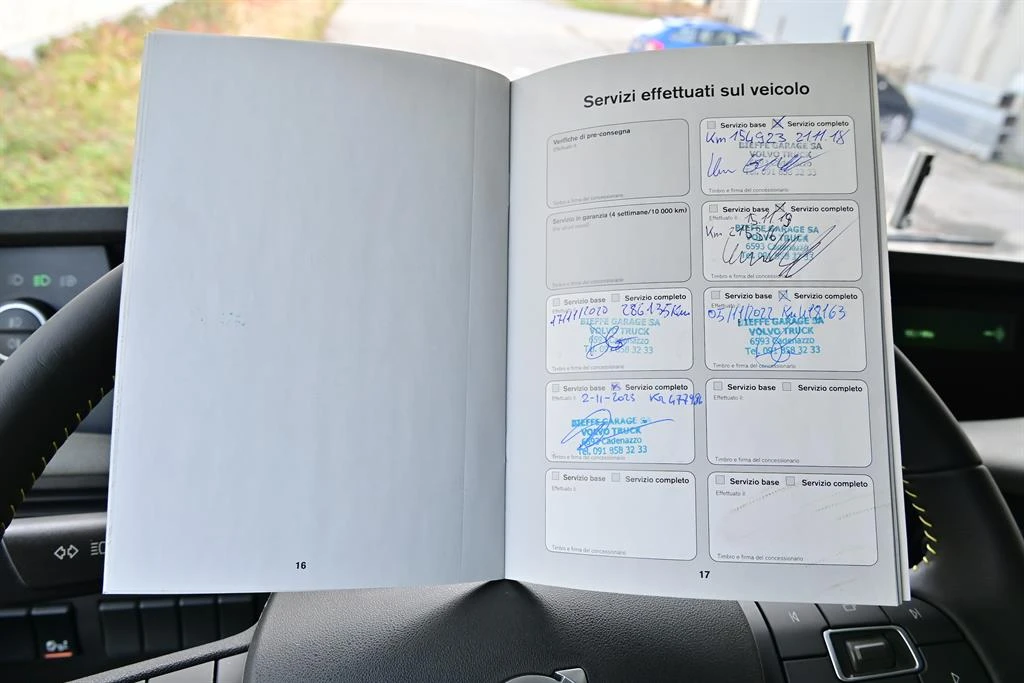 Servizi effettuati sul veicolo
Verifiche di pre-consegna
Effettuato il:
Timbro e firma del concessionario
Servizio base Servizio completo
Km 154923 21.11.18
BIEFFE GARAGE SA
VOLVO TRUCK
Tel. 091 858 32 33
Timbro e firma del concessionario
Servizio in garanzia (4 settimane/10 000 km)
Servizio base Servizio completo
Effettuato il: 15.11.19
Km
BIEFFE GARAGE SA
VOLVO TRUCK
6593 Cadenazzo
Timbro e firma del concessionario
Servizio base Servizio completo
17/11/2020 286135Km
BIEFFE GARAGE SA
VOLVO TRUCK
6593 Cadenazzo
Tel. 091 858 32 33
Timbro e firma del concessionario
Servizio base Servizio completo
03/11/2022 Km 418163
BIEFFE GARAGE SA
VOLVO TRUCK
6593 Cadenazzo
Tel. 091 858 32 33
Timbro e firma del concessionario
Servizio base Servizio completo
Effettuato il: 2-11-2023
BIEFFE GARAGE SA
VOLVO TRUCK
6593 Cadenazzo
Tel. 091 858 32 33
Timbro e firma del concessionario
Servizio base Servizio completo
Effettuato il:
Timbro e firma del concessionario
Servizio base Servizio completo
Effettuato il:
Timbro e firma del concessionario
Servizio base Servizio completo
Effettuato il:
Timbro e firma del concessionario
16
17